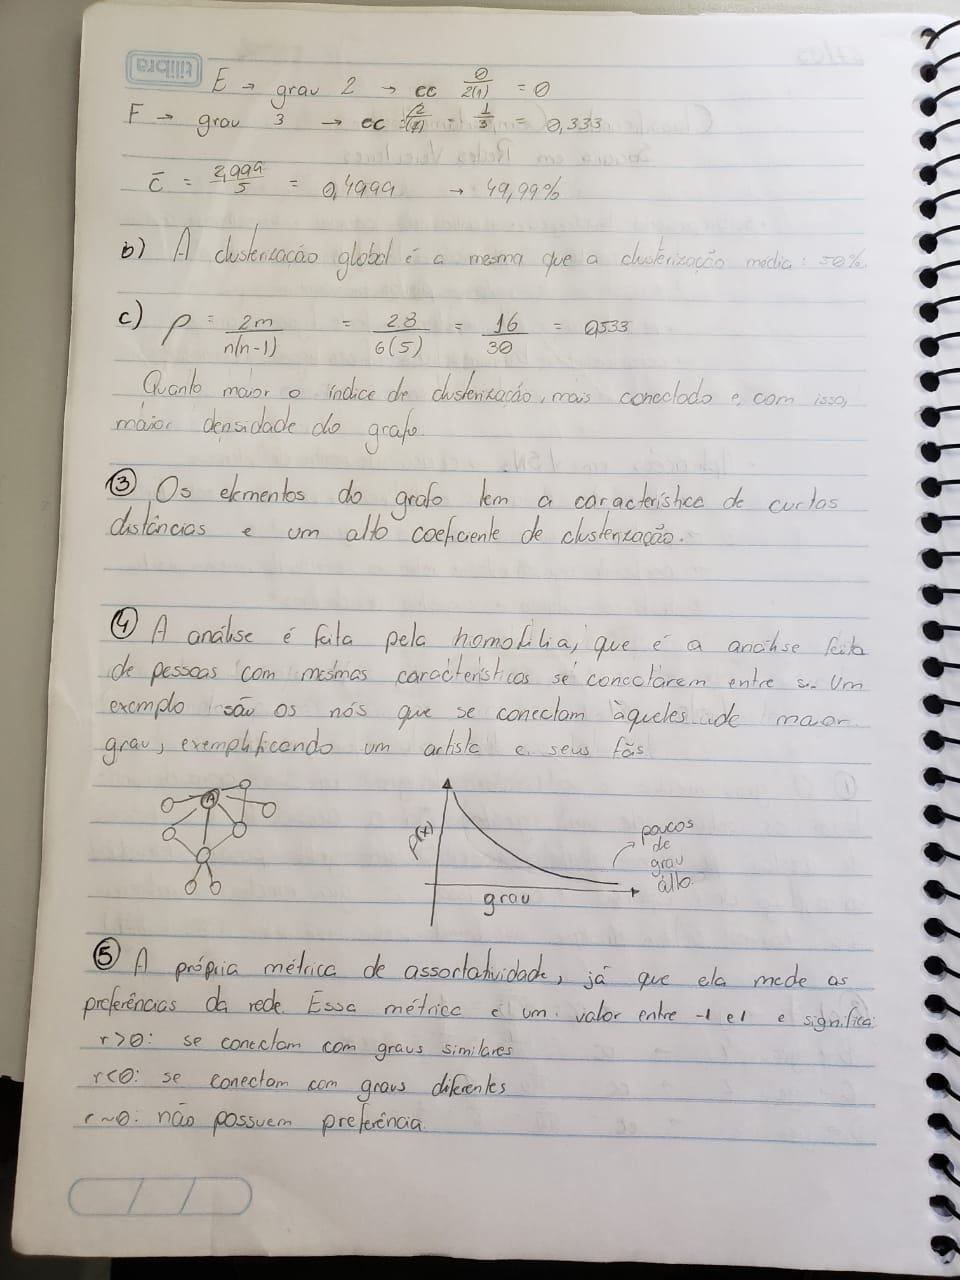 tilibra
E → grau 2 → cc 0/2(1) = 0
F → grau 3 → cc = 1/3 = 0,333
c̄ = 2,999/5 = 0,4999 → 49,99%
b) A clusterização global é a mesma que a clusterização média: 50%.
c) ρ = 2m/n(n-1) = 2.8/6(5) = 16/30 = 0,533
Quanto maior o índice de clusterização, mais conectado e, com isso,
maior densidade do grafo.
③ Os elementos do grafo tem a característica de curtas
distâncias e um alto coeficiente de clusterização.
④ A análise é feita pela homofilia, que é a análise feita
de pessoas com mesmas características se conectarem entre si. Um
exemplo são os nós que se conectam àqueles de maior
grau, exemplificando um artista e seus fãs.
A
p(x)
grau
poucos
de
grau
alto.
⑤ A própria métrica de assortatividade, já que ela mede as
preferências da rede. Essa métrica é um valor entre -1 e 1 e significa:
r>0: se conectam com graus similares
r<0: se conectam com graus diferentes
r~0: não possuem preferência.